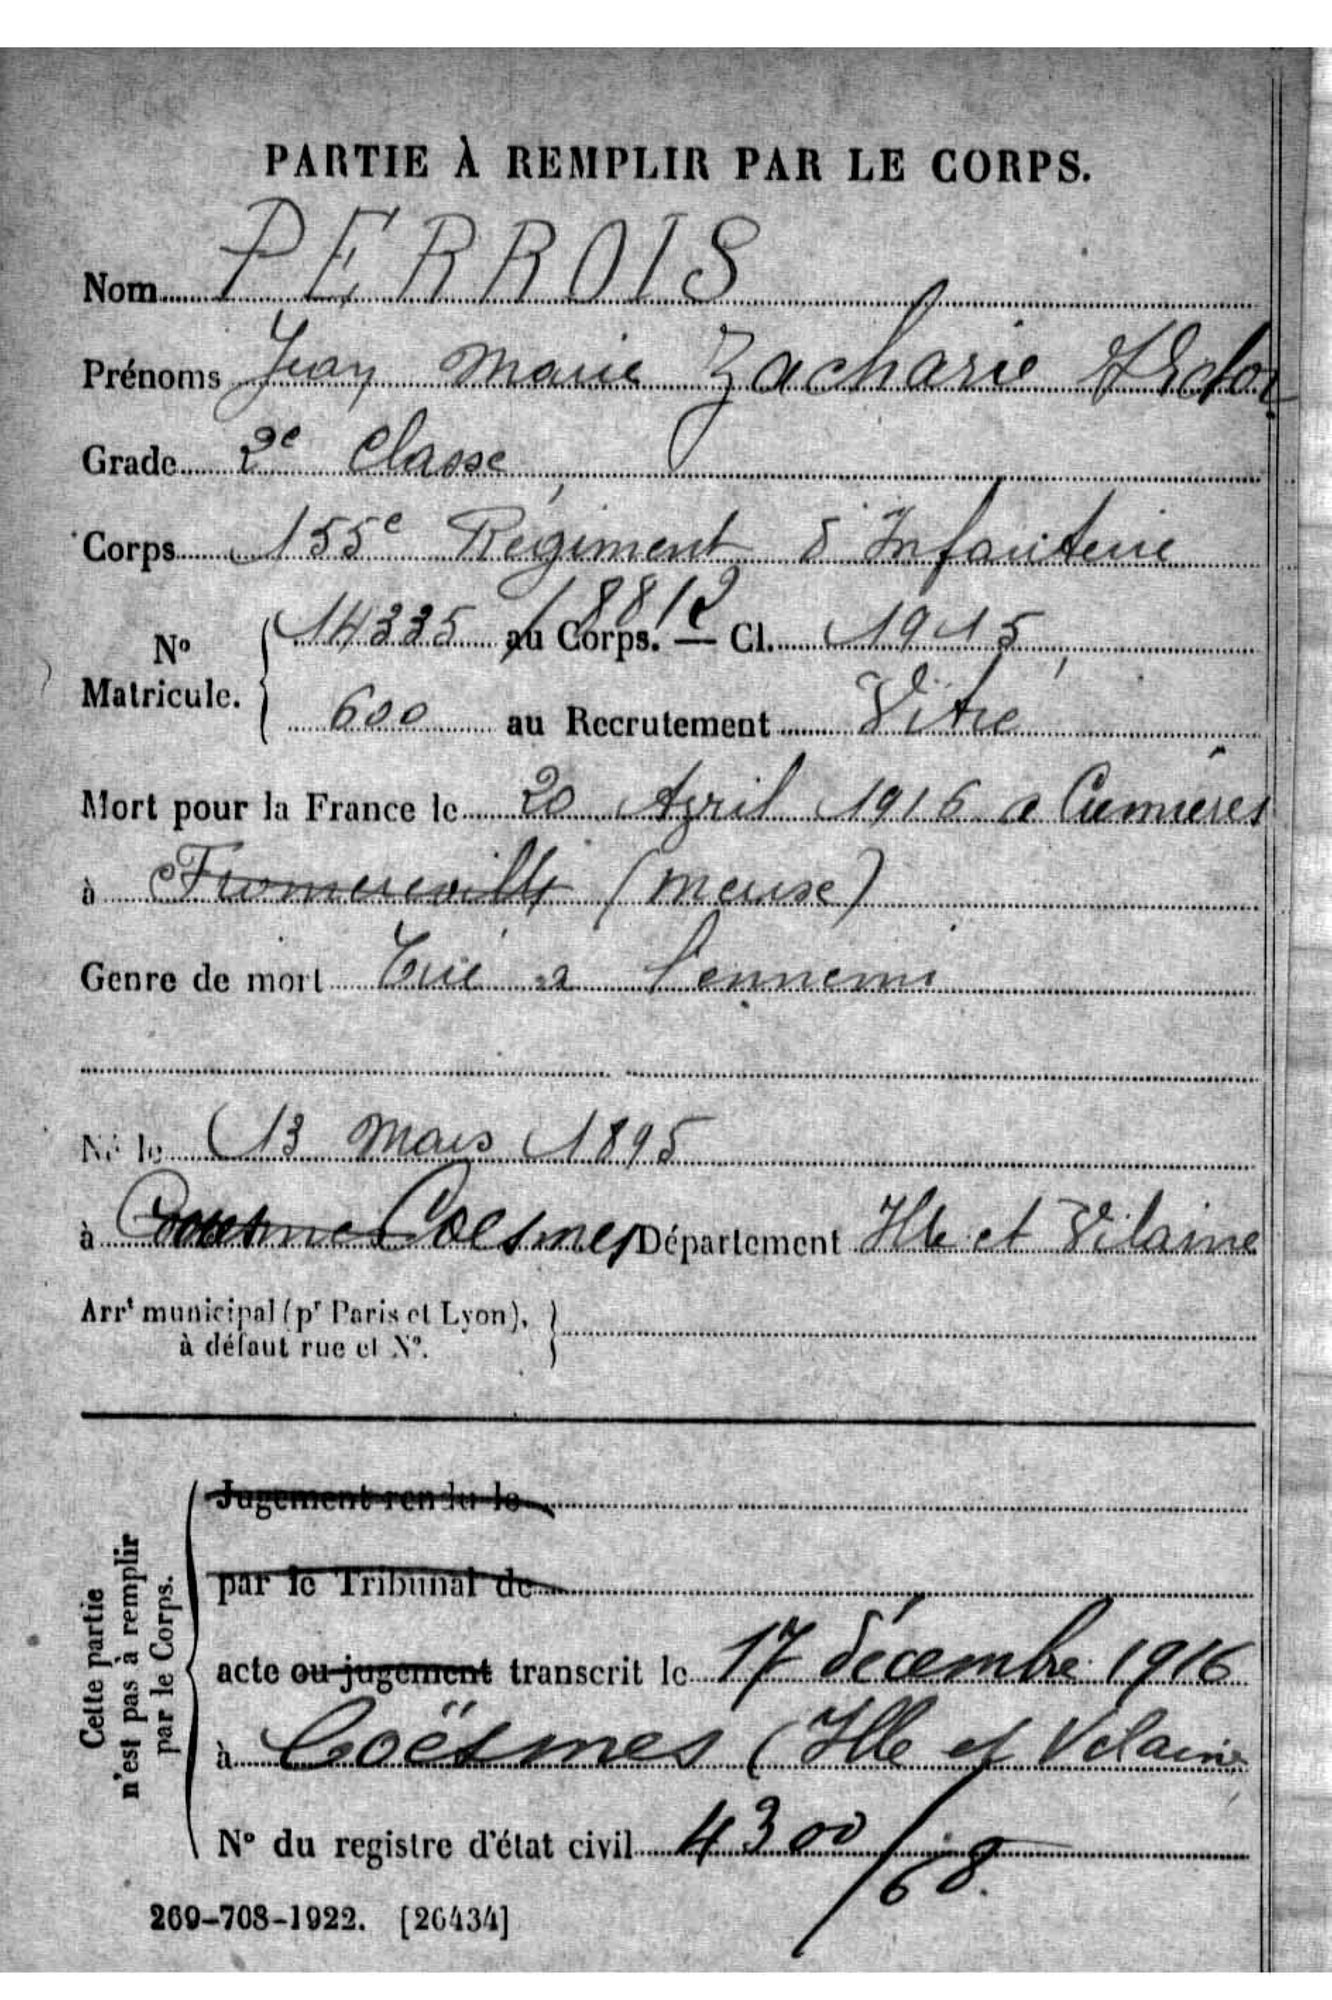 PARTIE À REMPLIR PAR LE CORPS.
Nom PERROIS
Prénoms Jean Marie Zacharie
Grade 2e Classe
Corps 155e Régiment d'Infanterie
18812
14335 au Corps. — Cl. 1915
N° Matricule.
600 au Recrutement Vitré
Mort pour la France le 20 Avril 1916 a Cumières
à Fromereville (Meuse)
Genre de mort Tué a l'ennemi
Né le 13 Mars 1895
à Coësmes Département Ille et Vilaine
Arrt municipal (pr Paris et Lyon),
à défaut rue et N°.
Cette partie
n'est pas à remplir
par le Corps.
Jugement rendu le
par le Tribunal de
acte ou jugement transcrit le 17 décembre 1916
à Coësmes (Ille et Vilaine
N° du registre d'état civil 4300/68.
269-708-1922. [26434]